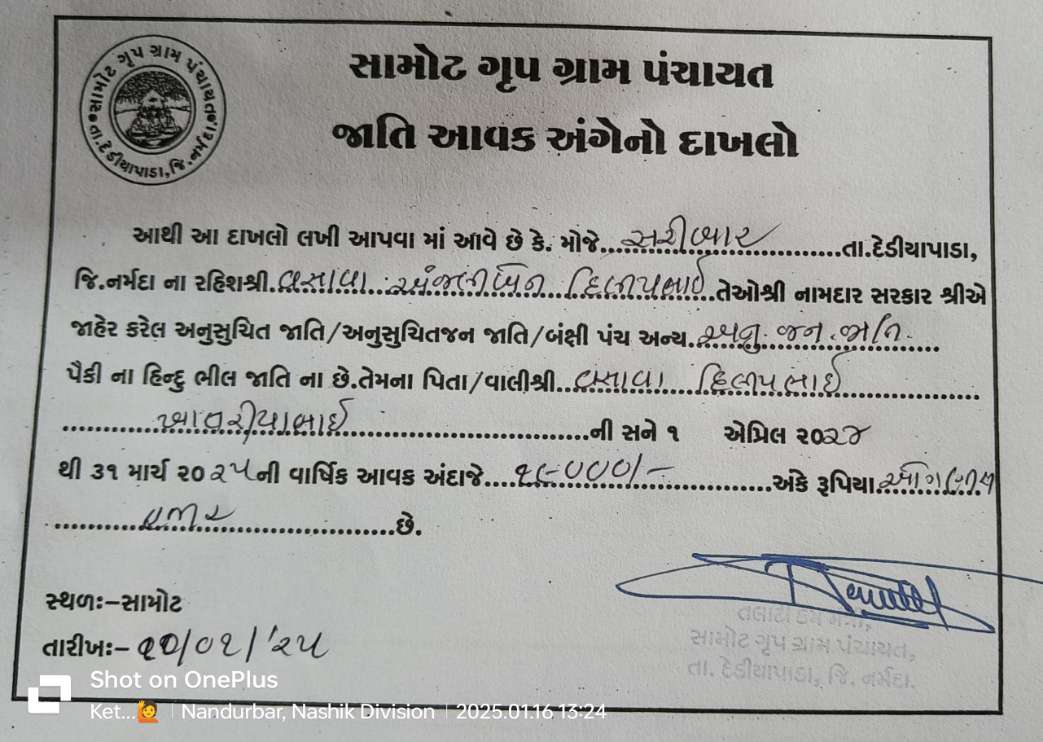 સામોટ ગૃપ ગ્રામ પંચાયત
તા.દેડીયાપાડા, જિ.નર્મદા
સામોટ ગૃપ ગ્રામ પંચાયત
જાતિ આવક અંગેનો દાખલો
આથી આ દાખલો લખી આપવા માં આવે છે કે. મોજે....સરીબાર....તા.દેડીયાપાડા,
જિ.નર્મદા ના રહિશશ્રી.વસાવા અંજલીબેન દિલીપભાઈ.તેઓશ્રી નામદાર સરકાર શ્રીએ
જાહેર કરેલ અનુસુચિત જાતિ/અનુસુચિતજન જાતિ/બંક્ષી પંચ અન્ય.અનુ.જન.જાતિ.
પૈકી ના હિન્દુ ભીલ જાતિ ના છે.તેમના પિતા/વાલીશ્રી..વસાવા દિલીપભાઈ....
....ભાઈ....ની સને ૧ એપ્રિલ ૨૦૨૪
થી ૩૧ માર્ચ ૨૦૨૫ની વાર્ષિક આવક અંદાજે....૧૯૦૦૦/-....અંકે રૂપિયા.ઓગણીસ
....હજાર....છે.
સ્થળઃ-સામોટ
તારીખઃ- ૧૦/૦૧/'૨૫
તલાટી કમ મંત્રી,
સામોટ ગૃપ ગ્રામ પંચાયત,
તા. દેડીયાપાડા, જિ. નર્મદા.
Shot on OnePlus
Ket...🙋 | Nandurbar, Nashik Division | 2025.01.16 13:24